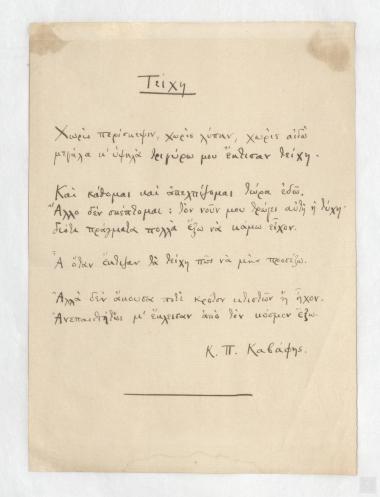 Τείχη
Χωρὶς περίσκεψιν, χωρὶς λύπην, χωρὶς αἰδῶ
μεγάλα κ' ὑψηλὰ τριγύρω μου ἔκτισαν τείχη.
Καὶ κάθομαι καὶ ἀπελπίζομαι τώρα ἐδῶ.
Ἄλλο δὲν σκέπτομαι: τὸν νοῦν μου τρώγει αὐτὴ ἡ τύχη·
διότι πράγματα πολλὰ ἔξω νὰ κάμω εἶχον.
Ἆ ὅταν ἔκτιζαν τὰ τείχη πῶς νὰ μὴν προσέξω.
Ἀλλὰ δὲν ἄκουσα ποτὲ κρότον κτιστῶν ἢ ἦχον.
Ἀνεπαισθήτως μ' ἔκλεισαν ἀπὸ τὸν κόσμον ἔξω.
Κ. Π. Καβάφης.